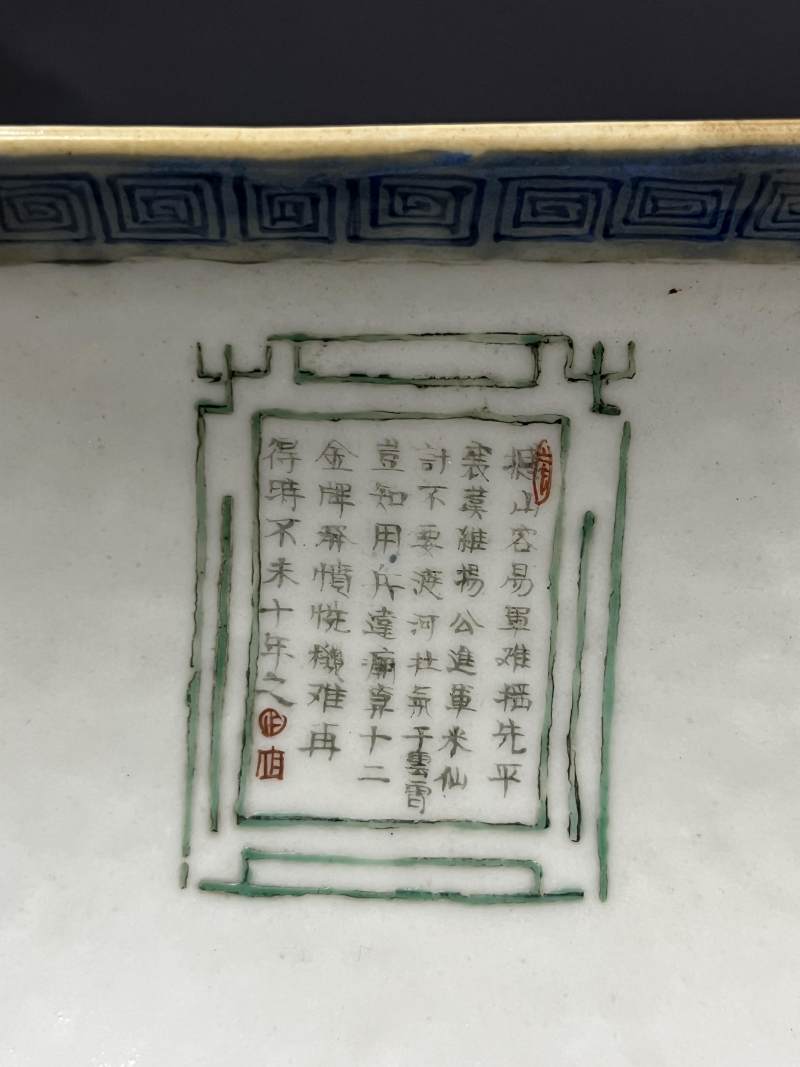 撼山容易軍难撼先平
襄漢維揚公進軍米仙
計不要渡河壮氣干雲霄
豈知用兵違廟算十二
金牌憤恍機难再
得時不未十年之